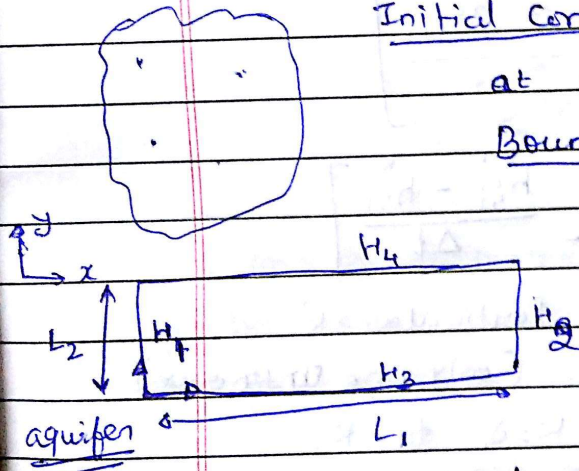 Initial Con
at
Boun
y
x
H4
L2
H1
H2
H3
L1
aquifer